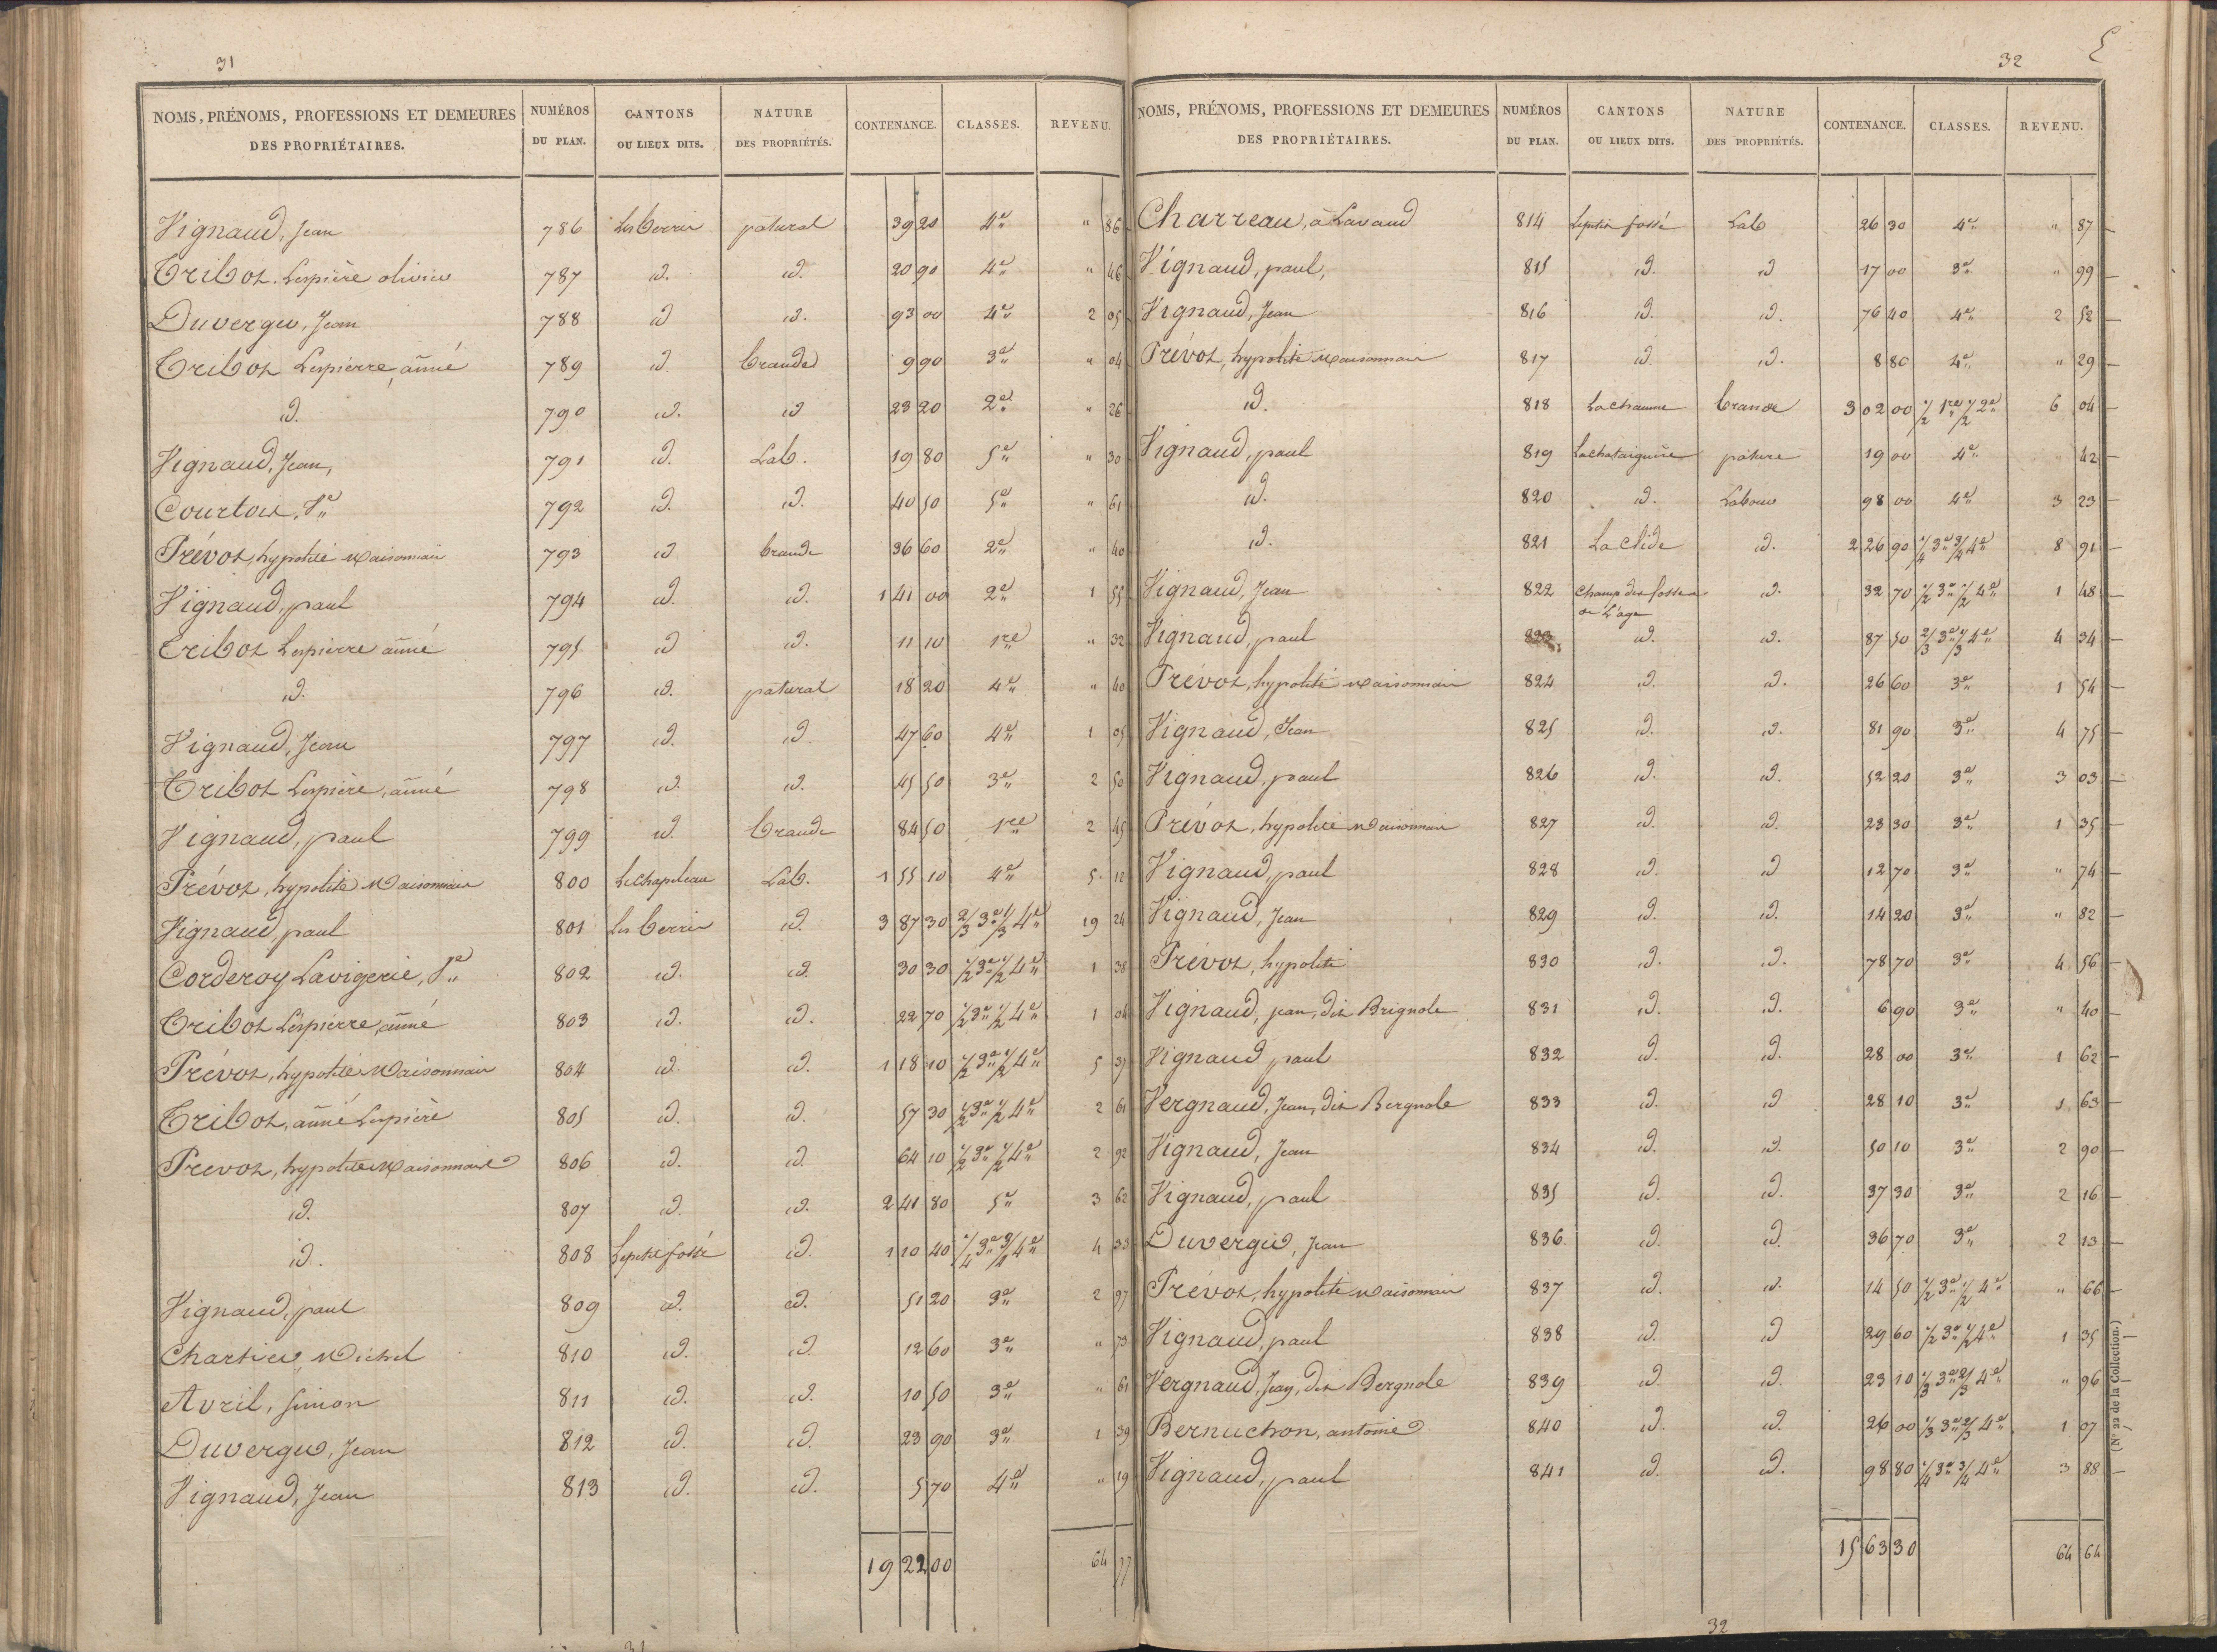 31
NOMS, PRÉNOMS, PROFESSIONS ET DEMEURES DES PROPRIÉTAIRES. NUMÉROS DU PLAN. CANTONS OU LIEUX DITS. NATURE DES PROPRIÉTÉS. CONTENANCE. CLASSES. REVENU.
Vignaud, Jean 786 Les Cerrir patural 39 20 4e " 86
Tribot Lespière olivier 787 id. id. 20 90 4e " 46
Duvergier, Jean 788 id id. 93 00 4e 2 05
Tribot Lespierre, ainné 789 id. brande 9 90 3e " 04
id. 790 id. id 23 20 2e " 26
Vignaud, Jean, 791 id. Lab. 19 80 5e " 30
Courtois, Pe 792 id. id. 40 50 5e " 61
Prévot, hypolite Maisonnair 793 id brande 36 60 2e " 40
Vignaud, paul 794 id. id. 1 41 00 2e 1 55
Tribot Lespierre ainné 795 id id. 11 10 1re " 32
id. 796 id. patural 18 20 4e " 40
Vignaud, Jean 797 id. id. 47 60 4e 1 05
Tribot Lespière, ainné 798 id. id. 45 50 3e 2 50
Vignaud, paul 799 id. brande 84 50 1re 2 45
Prévot, hypolite Maisonnair 800 Le chapeleau Lab. 1 55 10 4e 5 12
Vignaud, paul 801 Les Cerrir id. 3 87 30 2/3 3e 1/3 4e 19 24
Corderoy Lavigerie, Pe 802 id. id. 30 30 1/2 3e 1/2 4e 1 38
Tribot Lespierre, ainné 803 id. id. 22 70 1/2 3e 1/2 4e 1 04
Prévot, hypolite Maisonnair 804 id. id. 1 18 10 1/2 3e 1/2 4e 5 37
Tribot, ainné Lespière 805 id. id. 57 30 1/2 3e 1/2 4e 2 61
Prevot, hypolite Maisonnair 806 id. id. 64 10 1/2 3e 1/2 4e 2 92
id. 807 id. id. 2 41 80 5e 3 62
id. 808 Le petit fossé id. 1 10 40 1/4 3e 3/4 4e 4 33
Vignaud, paul 809 id. id. 51 20 3e 2 97
Chartier, Michel 810 id. id 12 60 3e " 73
Avril, Simon 811 id. id. 10 50 3e " 61
Duvergier, Jean 812 id. id. 23 90 3e 1 39
Vignaud, Jean 813 id. id. 5 70 4e " 19
19 22 00 64 77
31
32
E
NOMS, PRÉNOMS, PROFESSIONS ET DEMEURES DES PROPRIÉTAIRES. NUMÉROS DU PLAN. CANTONS OU LIEUX DITS. NATURE DES PROPRIÉTÉS. CONTENANCE. CLASSES. REVENU.
Charreau, à Lavaud 814 Le petit fossé Lab 26 30 4e " 87
Vignaud, paul, 815 id. id 17 00 3e " 99
Vignaud, Jean 816 id. id. 76 40 4e 2 52
Prévot, hypolite Maisonnair 817 id. id. 8 80 4e " 29
id. 818 La chaume brande 3 02 00 1/2 1re 1/2 2e 6 04
Vignaud, paul 819 La chataignière pature 19 00 4e " 42
id. 820 id. Labour 98 00 4e 3 23
id. 821 La clide id. 2 26 90 1/4 3e 3/4 4e 8 91
Vignaud, Jean 822 Champ des fosses ou L'age id. 32 70 1/2 3e 1/2 4e 1 48
Vignaud, paul 823 id. id. 87 50 2/3 3e 1/3 4e 4 34
Prévot, hypolite Maisonnair 824 id. id. 26 60 3e 1 54
Vignaud, Jean 825 id. id. 81 90 3e 4 75
Vignaud, paul 826 id. id. 52 20 3e 3 03
Prévot, hypolite Maisonnair 827 id. id. 23 30 3e 1 35
Vignaud, paul 828 id. id 12 70 3e " 74
Vignaud, Jean 829 id. id. 14 20 3e " 82
Prévot, hypolite 830 id. id. 78 70 3e 4 56
Vignaud, jean, dit Brignole 831 id. id. 6 90 3e " 40
Vignaud paul 832 id. id. 28 00 3e 1 62
Vergnaud, Jean, dit Bergnole 833 id. id 28 10 3e 1 63
Vignaud, Jean 834 id. id. 50 10 3e 2 90
Vignaud, paul 835 id. id. 37 30 3e 2 16
Duvergier, Jean 836. id. id. 36 70 3e 2 13
Prévot, hypolite Maisonnair 837 id. id. 14 50 1/2 3e 1/2 4e " 66
Vignaud, paul 838 id. id 29 60 1/2 3e 1/2 4e 1 35
Vergnaud, Jean, dit Bergnole 839 id. id. 23 10 1/3 3e 2/3 4e " 96
Bernuchon, antoine 840 id. id. 26 00 1/3 3e 2/3 4e 1 07
Vignaud, paul 841 id. id. 98 80 1/4 3e 3/4 4e 3 88
15 63 30 64 64
(N° 22 de la Collection.)
32